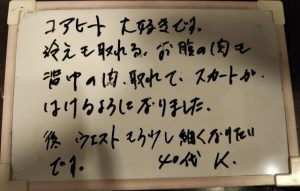 コアヒート 大好きです。
冷えも取れる、お腹の肉も
背中の肉、取れて、スカートが
はけるようになりました。
後 ウエストもう少し細くなりたい
です。 40代 K.